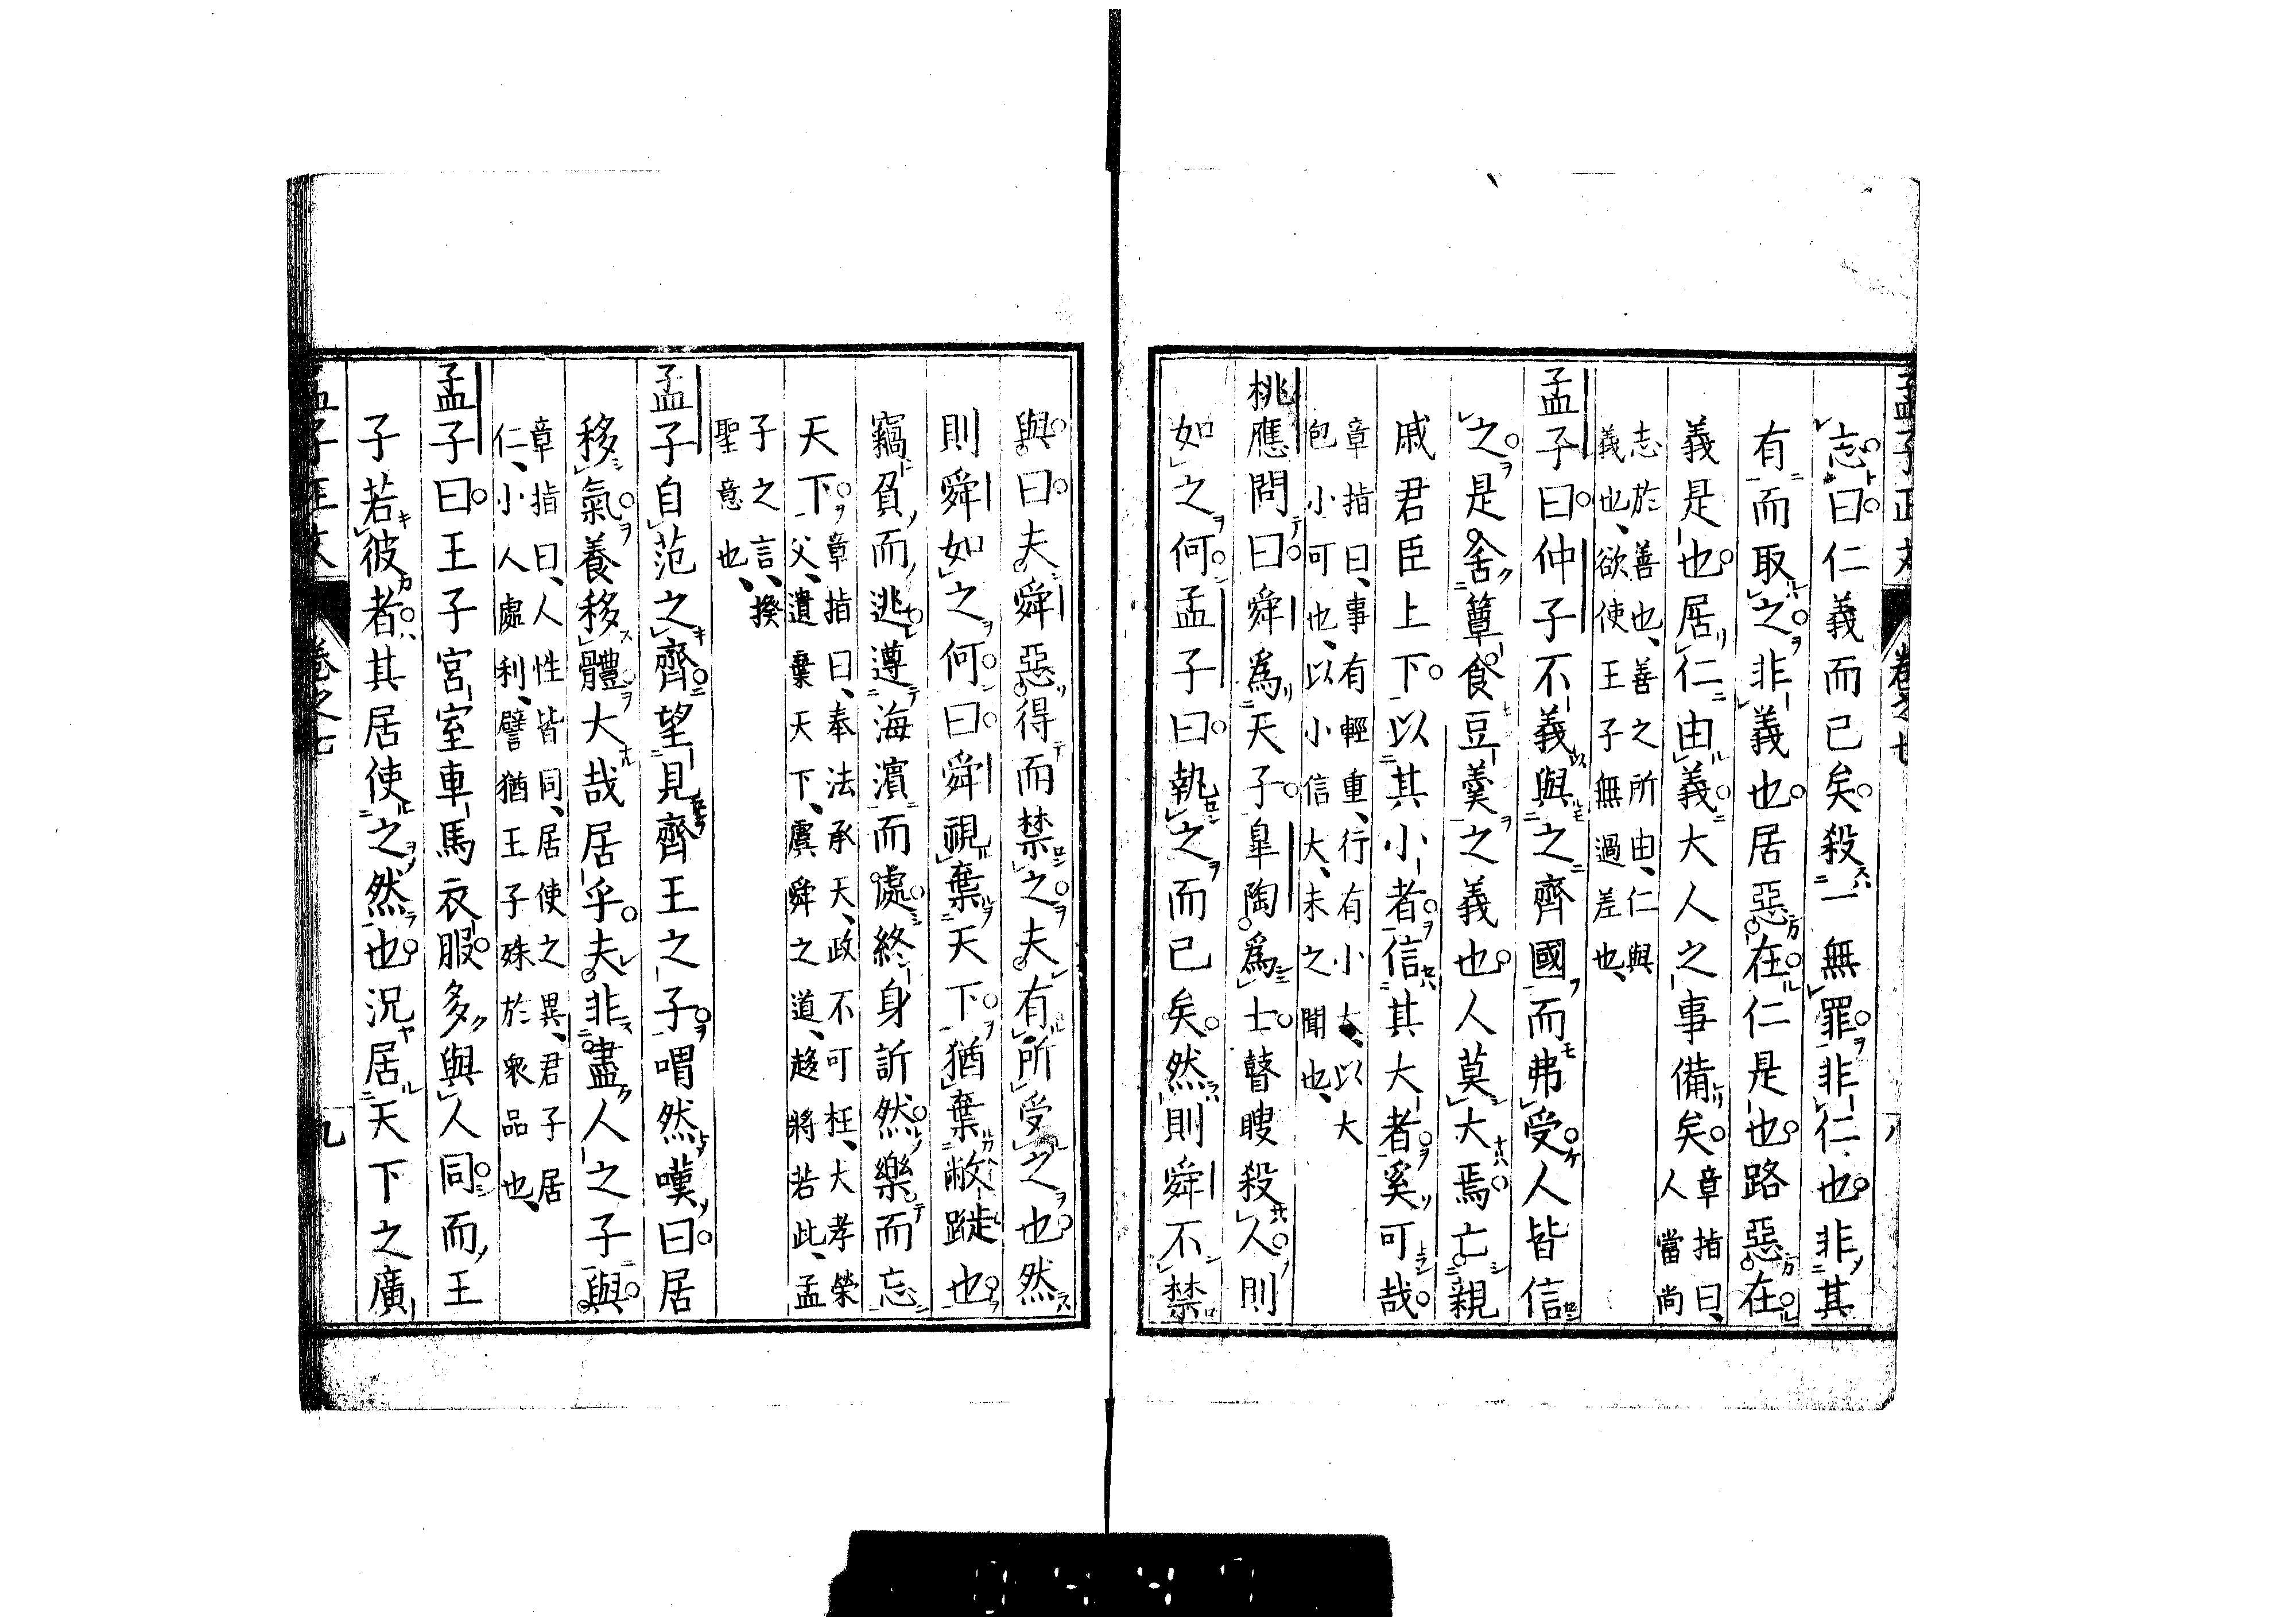 孟子正文 卷之七 八
志曰仁義而已矣殺一無罪非仁也非其
有而取之非義也居惡在仁是也路惡在
義是也居仁由義大人之事備矣章指曰、
人當尚
志於善也、善之所由、仁與
義也、欲使王子無過差也、
孟子曰仲子不義與之齊國而弗受人皆信
之是舍簞食豆羹之義也人莫大焉亡親
戚君臣上下以其小者信其大者奚可哉
章指曰、事有輕重、行有小大、以大
包小可也、以小信大、未之聞也、
桃應問曰舜爲天子皐陶爲士瞽瞍殺人則
如之何孟子曰執之而已矣然則舜不禁
與曰夫舜惡得而禁之夫有所受之也然
則舜如之何曰舜視棄天下猶棄敝蹝也
竊負而逃遵海濱而處終身訢然樂而忘
天下章指曰、奉法承天、政不可枉、大孝榮
父、遺棄天下、虞舜之道、趍將若此、孟
子之言、揆
聖意也、
孟子自范之齊望見齊王之子喟然嘆曰居
移氣養移體大哉居乎夫非盡人之子與
章指曰、人性皆同、居使之異、君子居
仁、小人處利、譬猶王子殊於衆品也、
孟子曰王子宮室車馬衣服多與人同而王
子若彼者其居使之然也況居天下之廣
孟子正文 卷之七 九